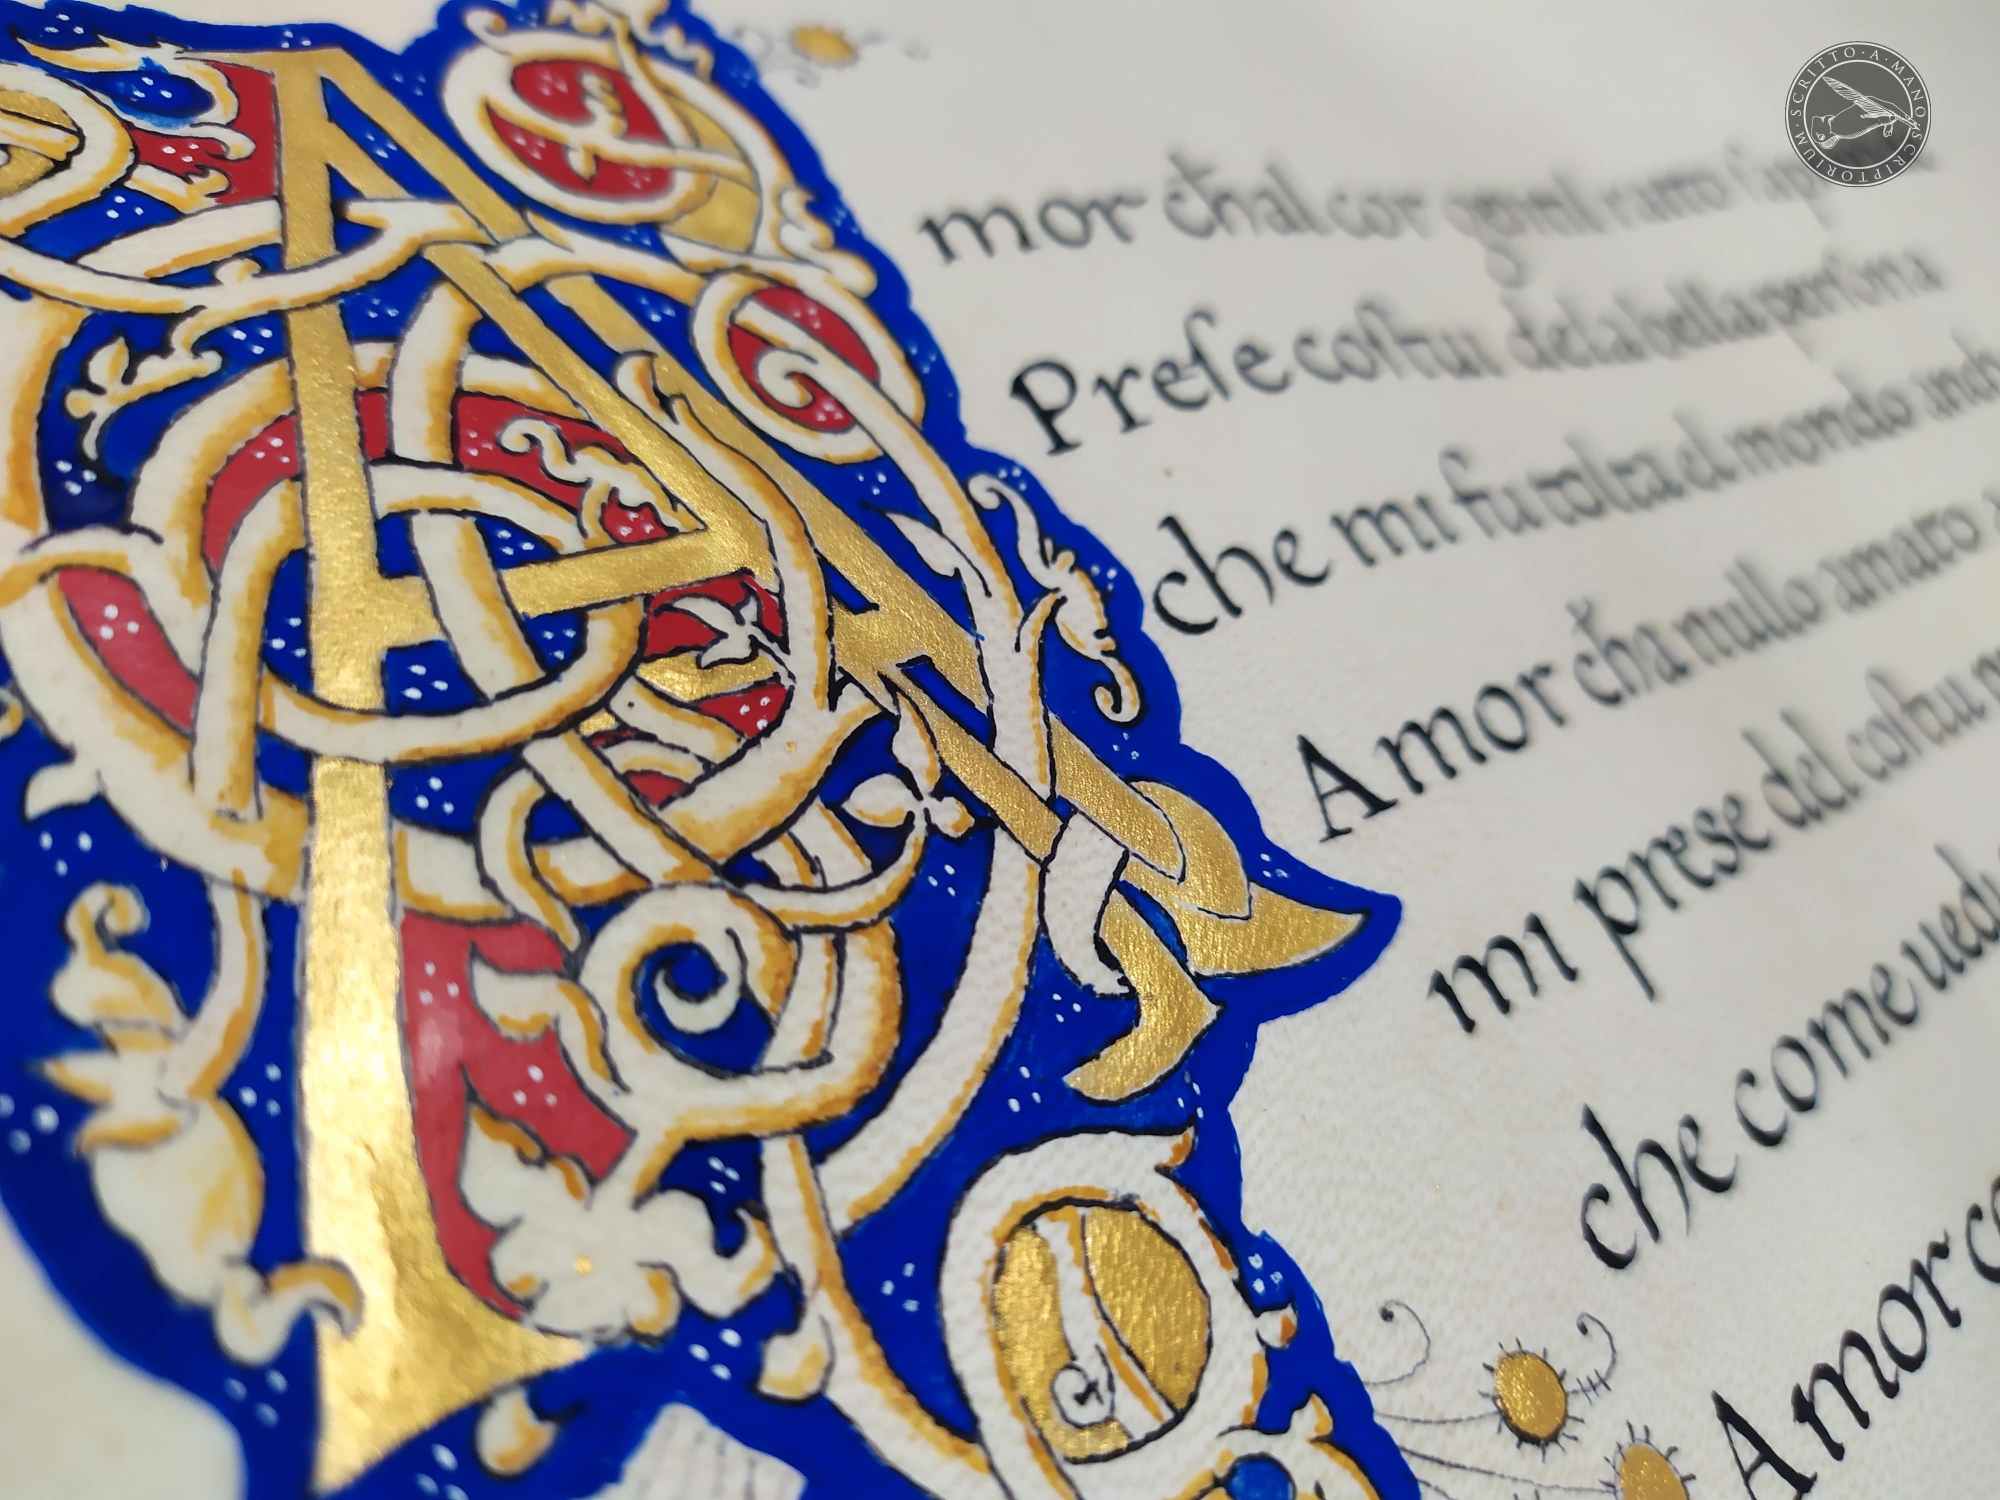 SCRITTO · A · MANO · SCRIPTORIUM ·
A
mor ch'hal cor gentil ratto ſap
Preſe coſtui dela bella perſona
che mi fu tolta el mondo anch
Amor ch'ha nullo amato a
mi prese del coſtui
che come uedi
Amor co